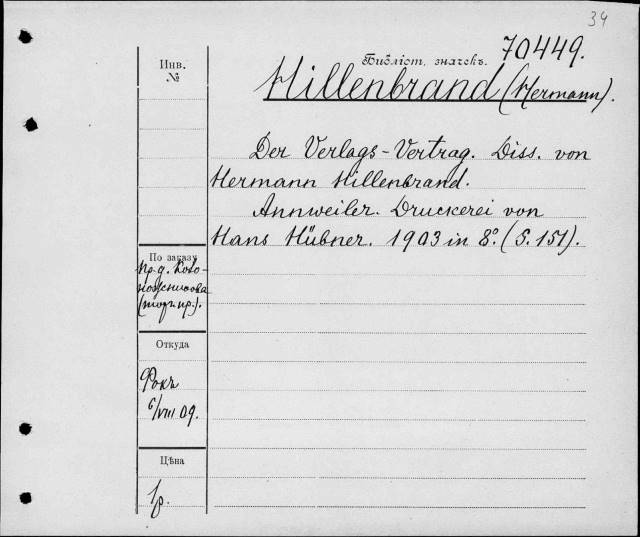 34
Библіот. значекъ. 70449.
Инв.
№
Hillenbrand (Hermann).
Der Verlags-Vertrag. Diss. von
Hermann Hillenbrand.
Annweiler. Druckerei von
Hans Hübner. 1903 in 8º. (S. 151).
По заказу
пр.
(торг. пр.).
Откуда
Фокъ
6/VIII 09.
Цѣна
1р.